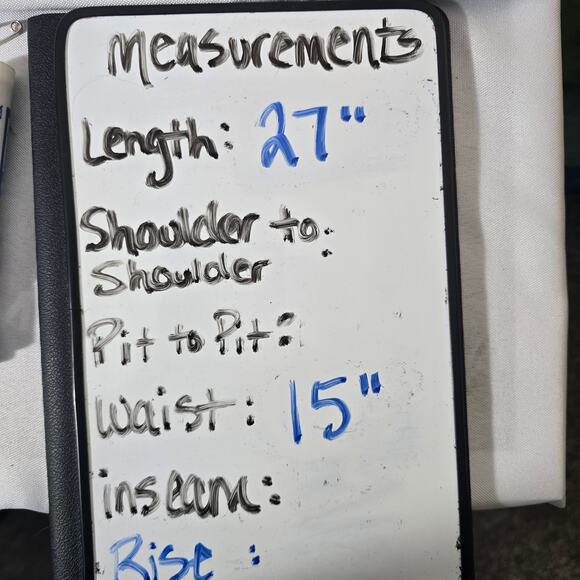 Measurements
Length: 27"
Shoulder to:
Shoulder
Pit to Pit:
waist: 15"
inseam:
Rise :